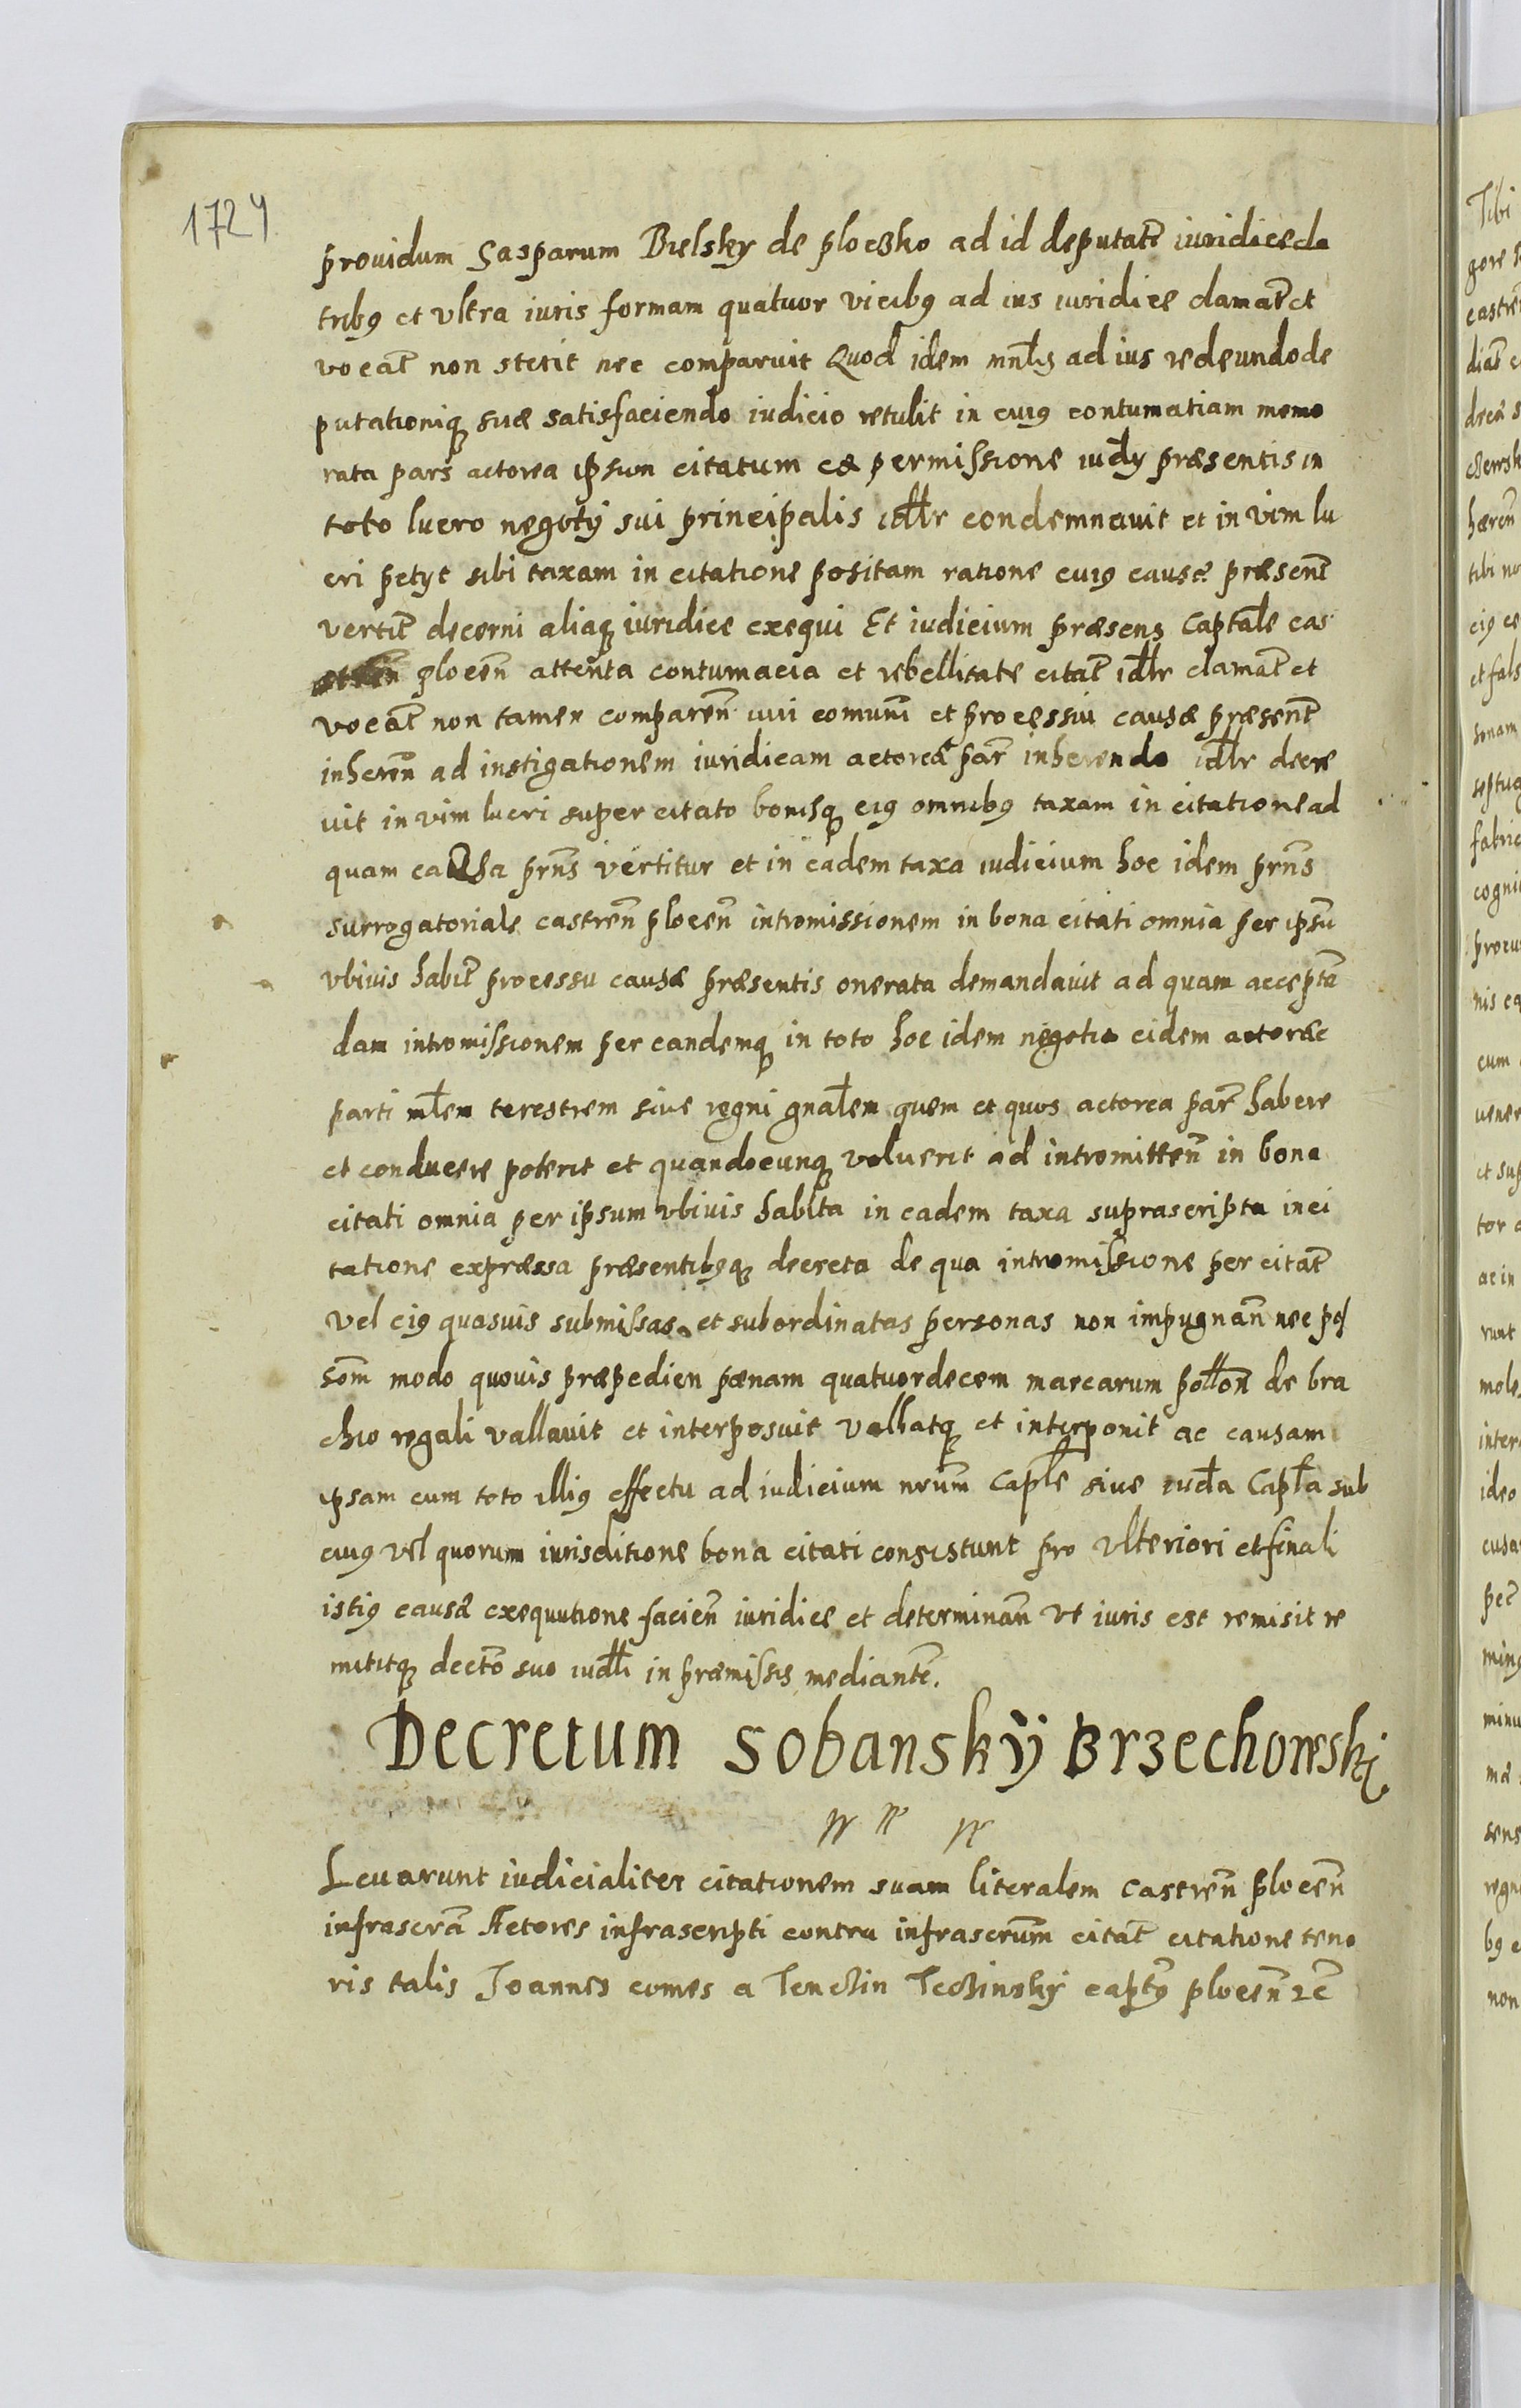 1724
prouidum Gasparum Bielsky de ploczko ad id deputatū iuridice da
tribꝰ et vltra iuris formam quatuor vicibꝰ ad ius iuridice clamat̄ et
vocat̄ non stetit nec comparuit Quod idem mnlīs ad ius redeundo de
putationiqꝫ suæ satisfaciendo iudicio retulit in cuiꝰ contumatiam memo
rata pars actorea ipsum citatum ex permissione iudy præsentis in
toto lucro negotÿ sui principalis idllr condemnauit et in vim lu
cri petyt sibi taxam in citatione positam ratione cuiꝰ causæ præsent̄
vertit̄ decerni aliaqꝫ iuridice exequi Et iudicium præsens Captale cas
ploceñ attenta contumacia et rebellitate citat̄ idllr clamat̄ et
vocat̄ non tamen compareñ iuri comuni et processui causæ præsent̄
inhereñ ad instigationem iuridicam actoreæ par̄ inherendo idllr decre
uit in vim lucri super citato bonisqꝫ eiꝰ omnibꝰ taxam in citatione ad
quam causa prn̄s vertitur et in eadem taxa iudicium hoc idem prn̄s
surrogatoriale castreñ ploceñ intromissionem in bona citati omnia per ipsū
vbiuis habit̄ processu causæ præsentis onerata demandauit ad quam acceptā
dam intromissionem per eandemqꝫ in toto hoc idem negotio eidem actoreæ
parti mlem terestrem siue regni gnalem quem et quos actorea par̄ habere
et conducere poterit et quandocunqꝫ voluerit ad intromitteñ in bona
citati omnia per ipsum vbiuis hablta in eadem taxa suprascripta in ci
tatione expræssa præsentibꝰqꝫ decreta de qua intromissione per citat̄
vel eiꝰ quasuis submissas et subordinatas personas non impugnañ nec per
som̄ modo quouis præpedien pænam quatuordecem marcarum polloñ de bra
chio regali vallauit et interposuit vallatqꝫ et interponit ac causam
ipsam cum toto illiꝰ effectu ad iudicium nrūm Caple siue iuda Capla sub
cuiꝰ vel quorum iurisditione bona citati consistunt pro vlteriori et finali
istiꝰ causæ exequutione facieñ iuridice et determinañ vt iuris est remisit re
mititqꝫ decto suo iudlli in præmissis mediante.
Decretum Sobanskÿ Brzechowskj
Leuarunt iudicialiter citationem suam literalem castreñ ploceñ
infrascrā Actores infrascripti contra infrascrūm citat̄ citatione teno
ris talis Joannes comes a Tenczin Teczinskÿ captꝰ ploceñ ꝛc̄